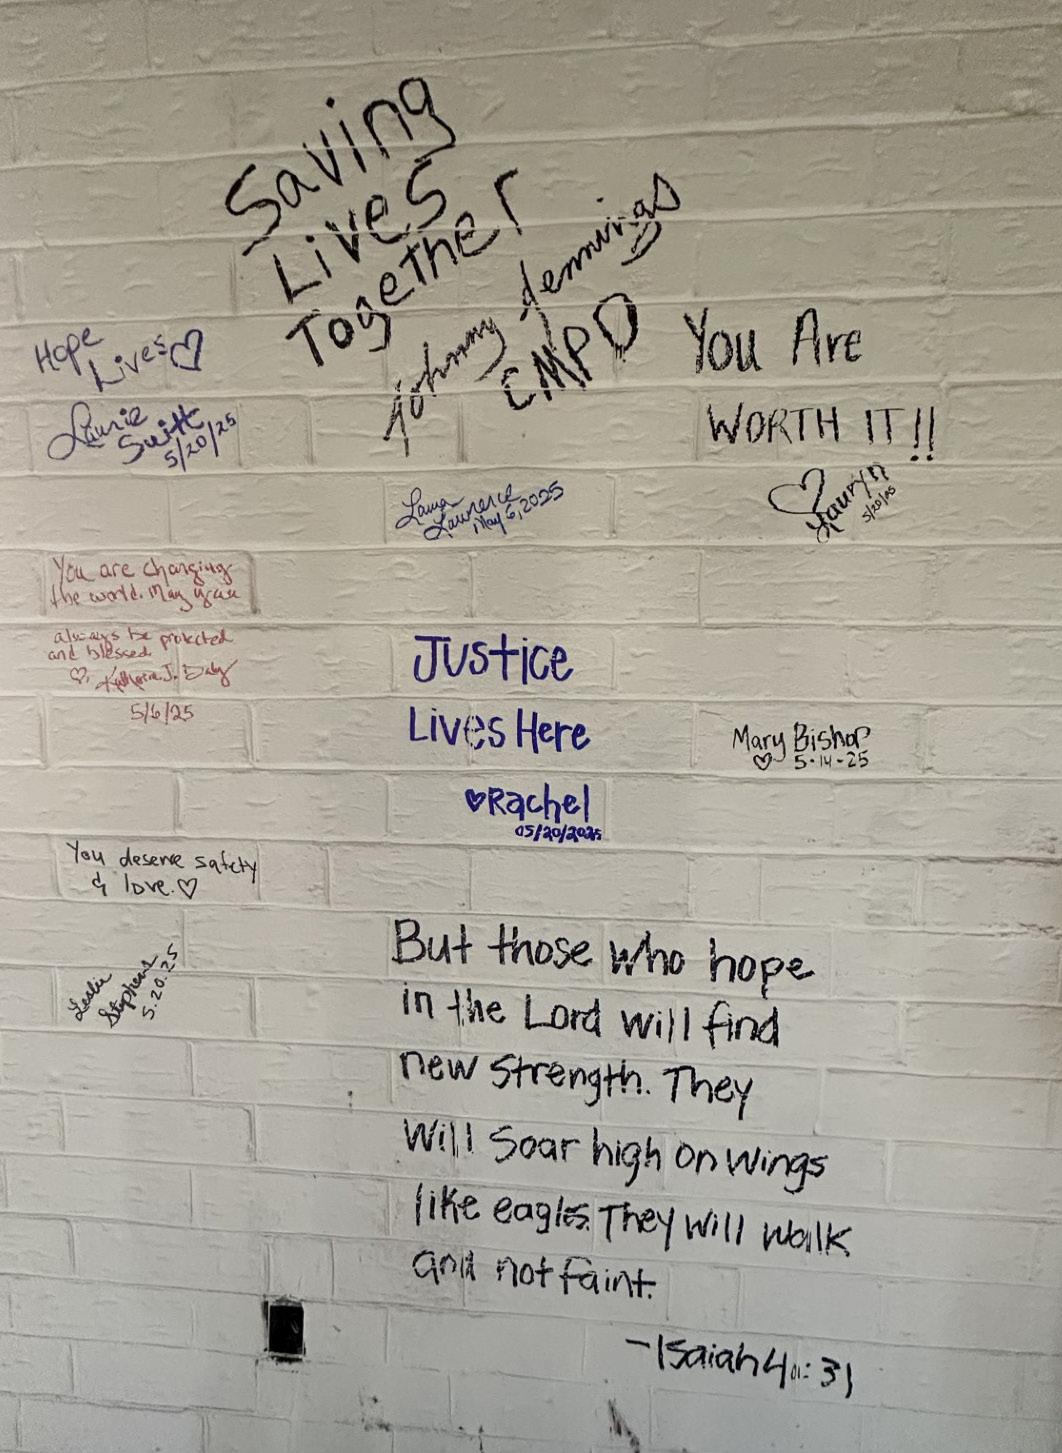 Saving
Lives
Together
Johnny Jennings
CMPD
Hope
Lives
Laurie
Switt
5/20/25
You Are
WORTH IT!!
Lauryn
5/20/25
Laura
Lawrence
May 6, 2025
You are changing
the world. May you
always be protected
and blessed
Katherine J. Daly
5/6/25
Justice
Lives Here
Rachel
05/20/2025
Mary Bishop
5-14-25
You deserve safety
& love.
Leslie
Stephens
5.20.25
But those who hope
in the Lord will find
new strength. They
will soar high on wings
like eagles. They will walk
and not faint.
-Isaiah 40:31